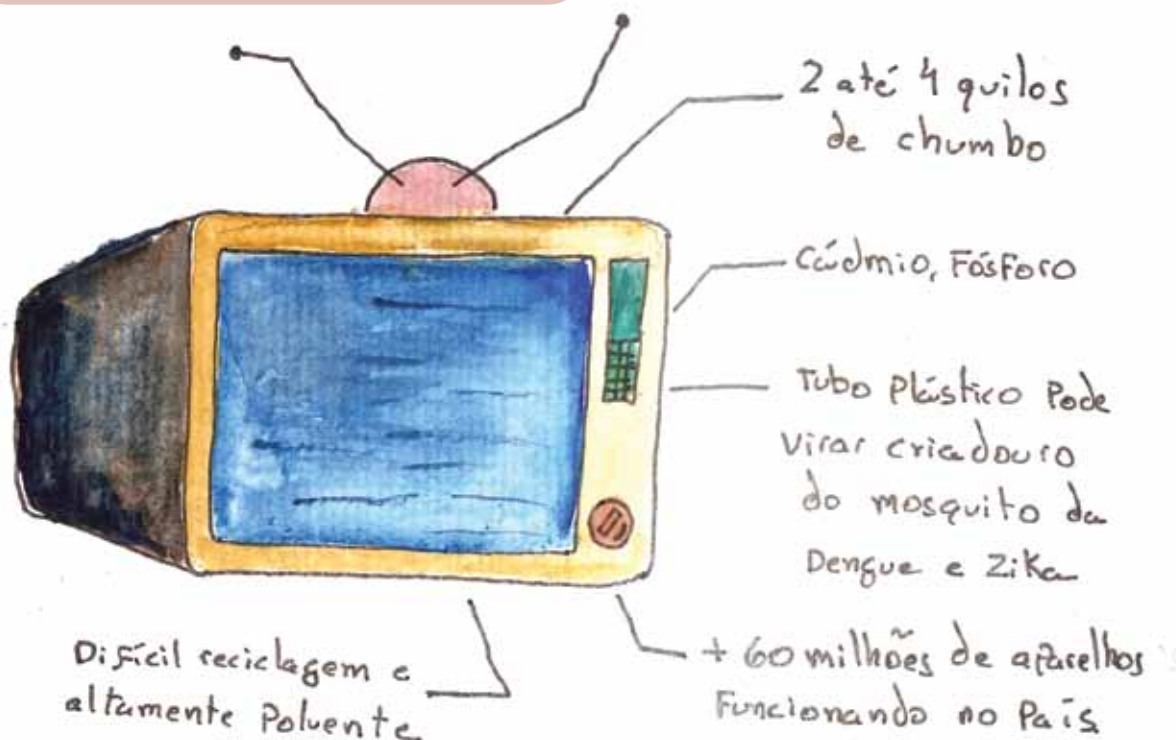 2 até 4 quilos
de chumbo
Cádmio, Fósforo
Tubo Plástico Pode
virar criadouro
do mosquito da
Dengue e Zika
+ 60 milhões de aparelhos
Funcionando no País
Difícil reciclagem e
altamente Poluente